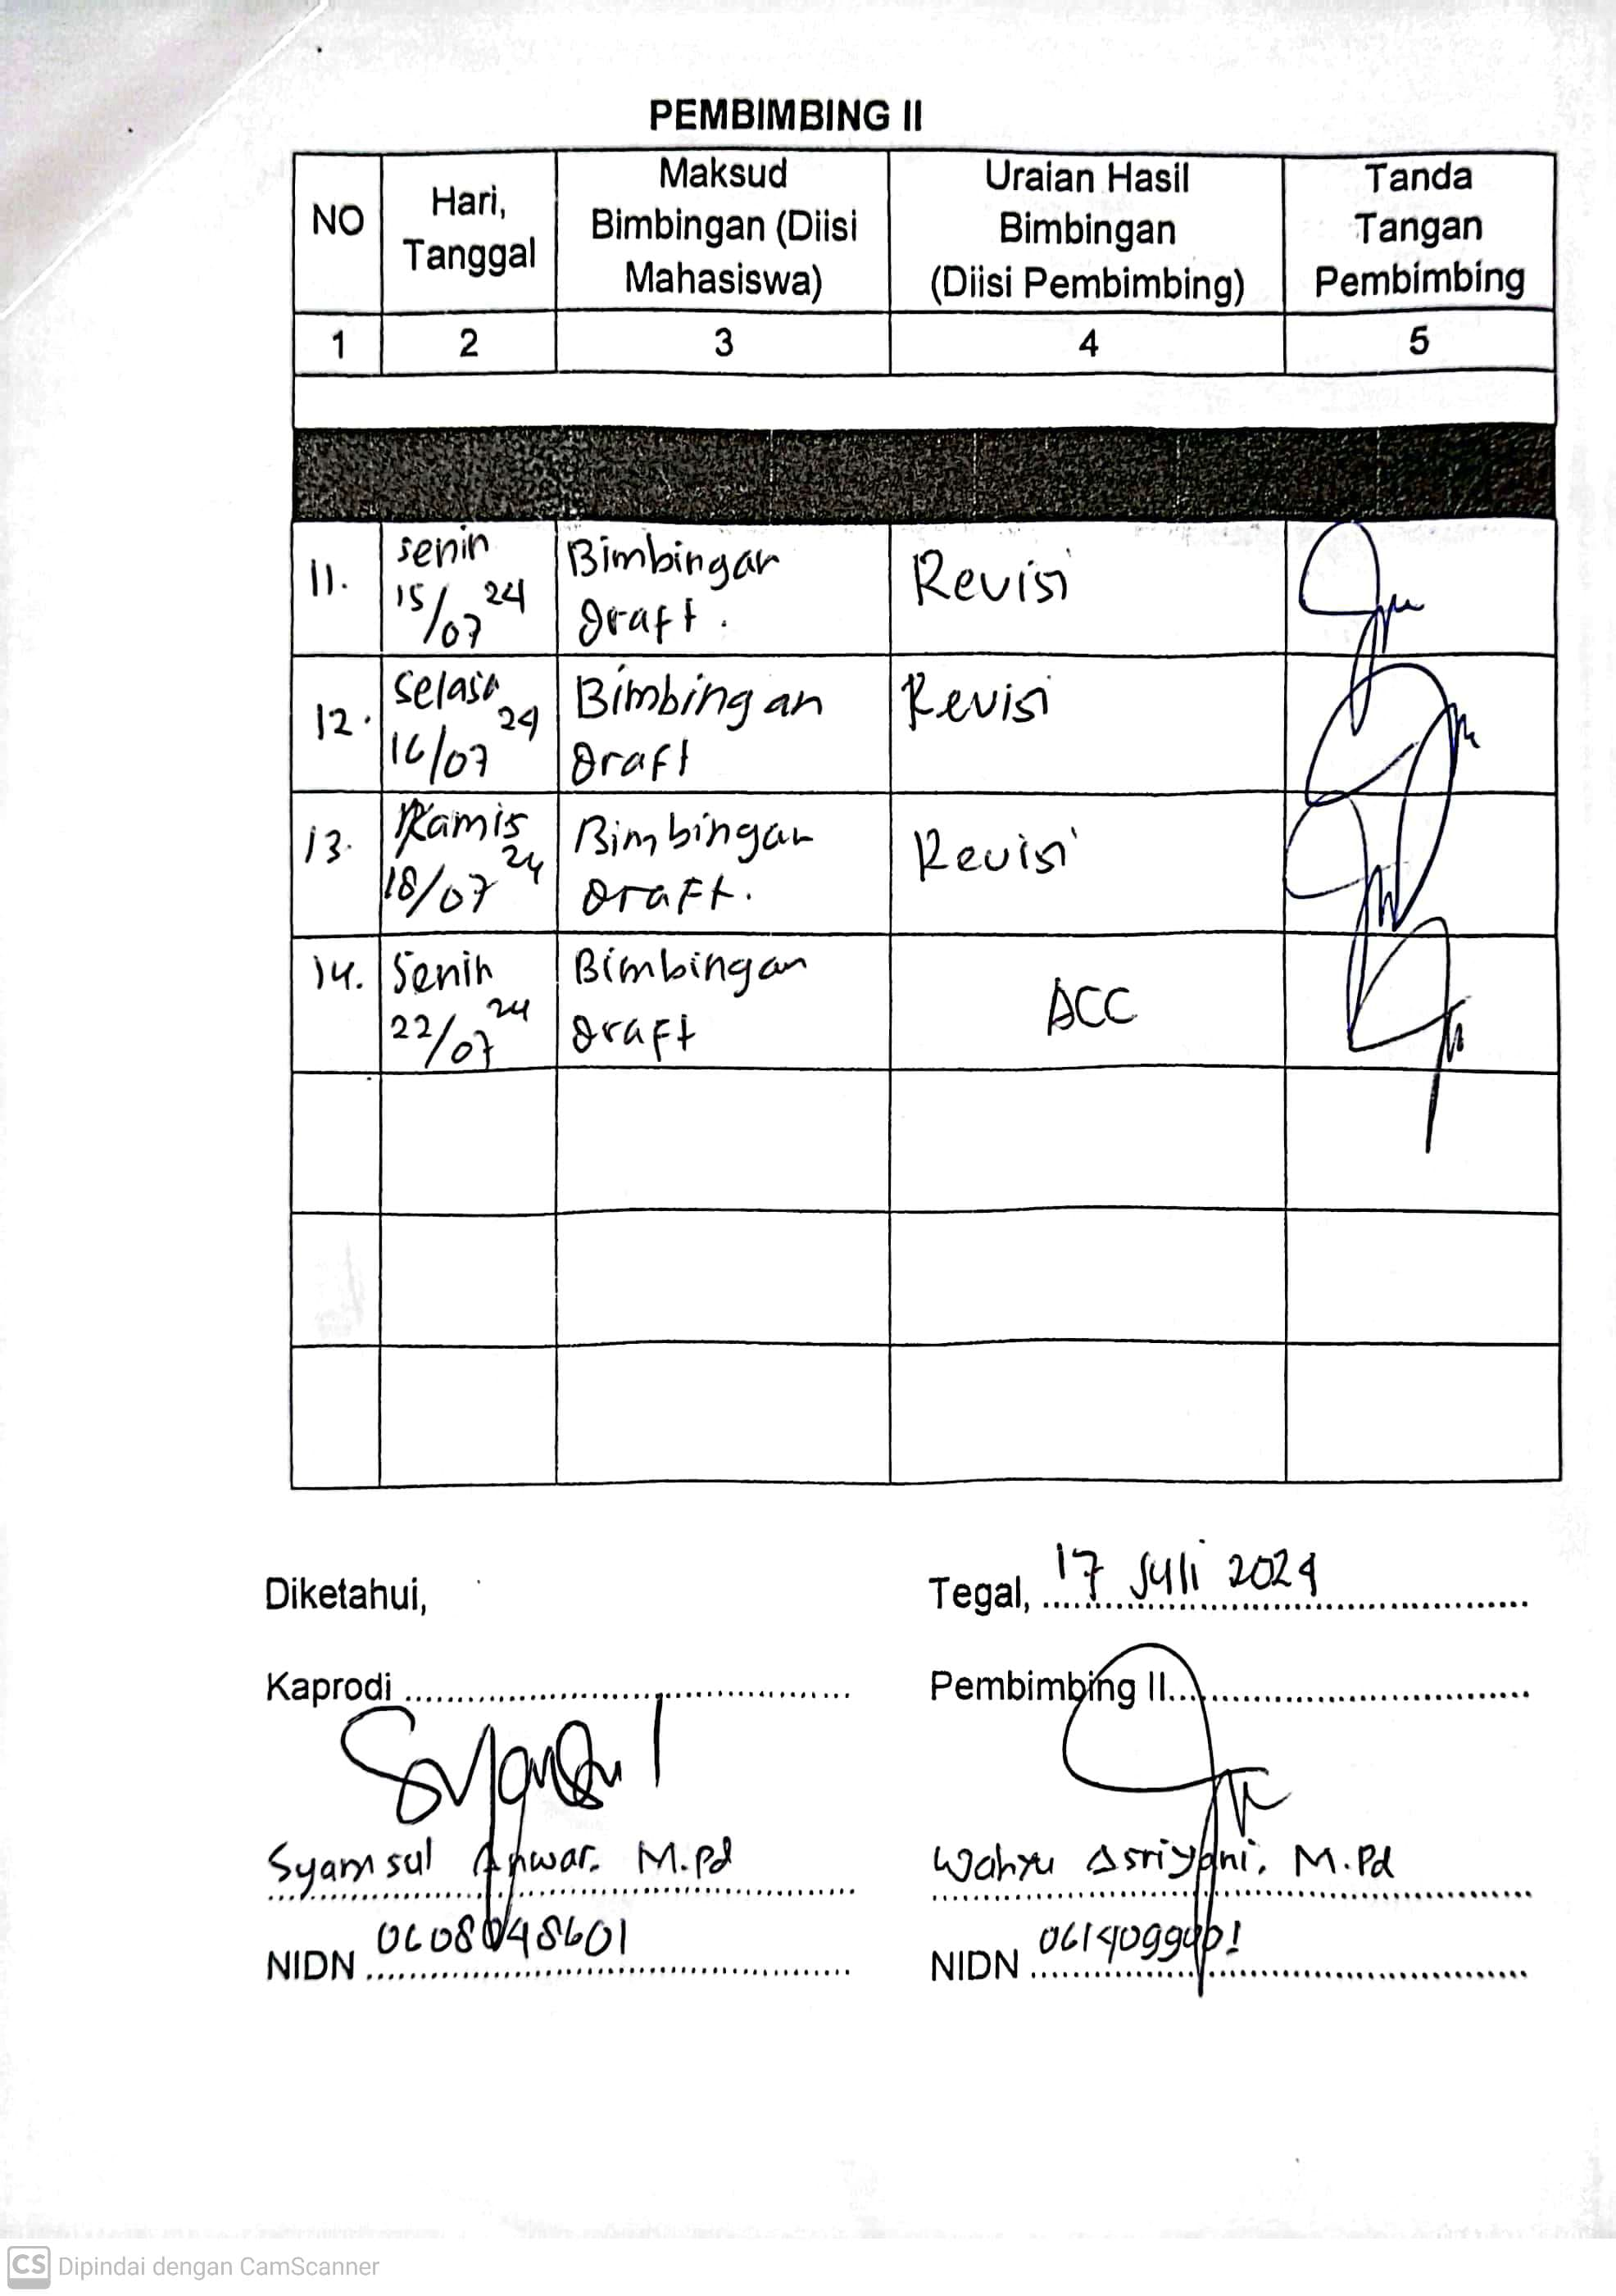 PEMBIMBING II
NO
Hari,
Tanggal
Maksud
Bimbingan (Diisi
Mahasiswa)
Uraian Hasil
Bimbingan
(Diisi Pembimbing)
Tanda
Tangan
Pembimbing
1 2 3 4 5
11.
senin
15/07 24
Bimbingan
draft.
Revisi
12.
Selasa
16/07 24
Bimbingan
draft
Revisi
13.
Kamis
18/07 24
Bimbingan
draft.
Revisi
14.
Senin
22/07 24
Bimbingan
draft
ACC
Diketahui,
Tegal, 17 Juli 2024
Kaprodi
Pembimbing II
Syamsul Anwar. M.Pd
Wahyu Asriyani. M.Pd
NIDN 0608048601
NIDN
CS Dipindai dengan CamScanner